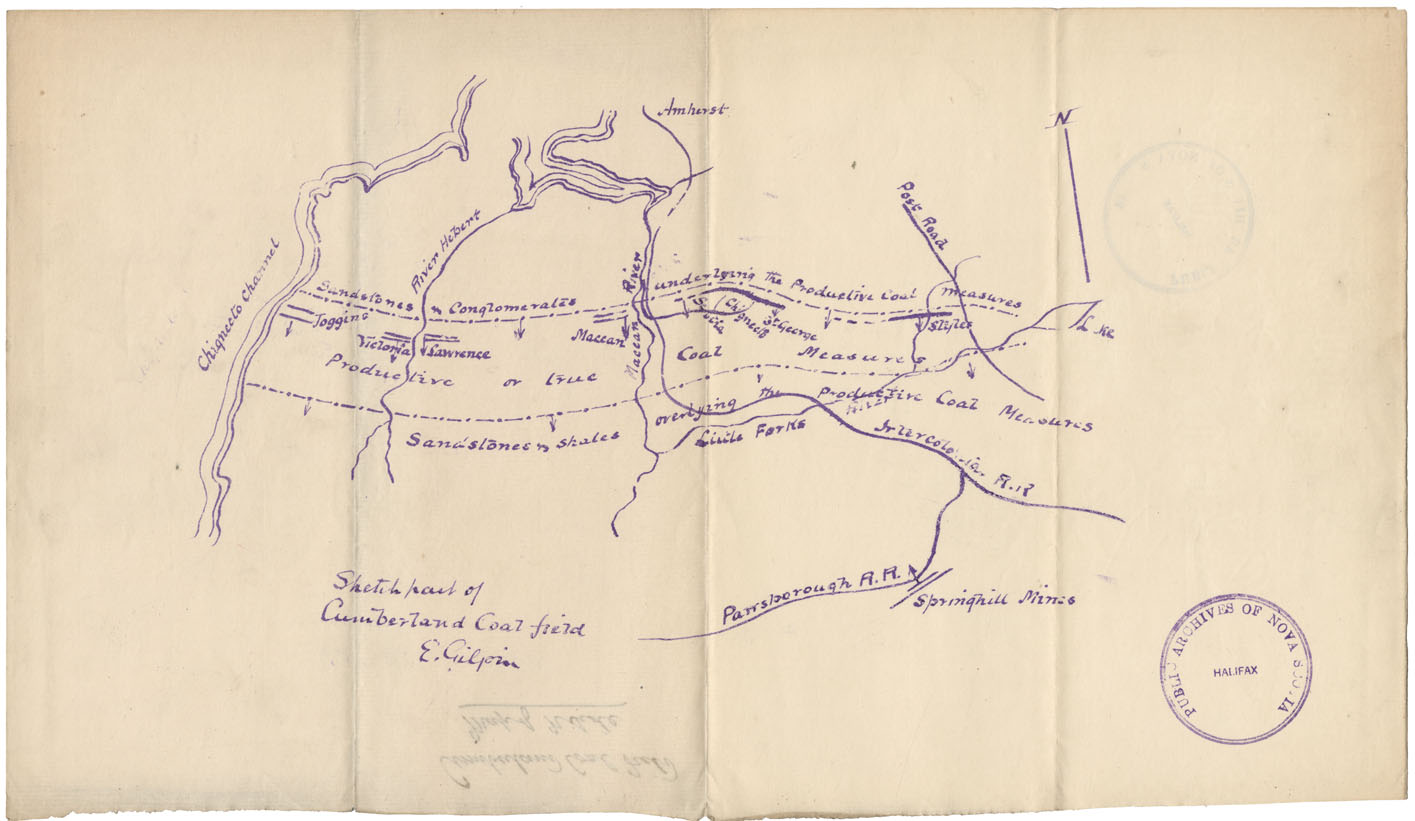 Amherst
N
Post Road
Chignecto Channel
River Hebert
Maccan River
underlying the Productive Coal measures
Sandstones & Conglomerates
Joggins
Victoria
Lawrence
Maccan
Scotia
Chignecto
St George
Styles
Lake
Productive or true Coal Measures
Sandstones & shales overlying the Productive Coal Measures
Little Forks River
Intercolonial R.R
Parrsborough R.R.
Springhill Mines
Sketch part of
Cumberland Coal field
E. Gilpin
PUBLIC ARCHIVES OF NOVA SCOTIA
HALIFAX